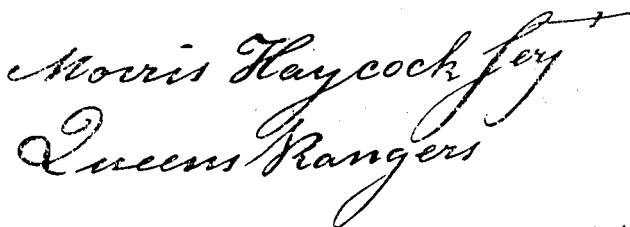 Morris Haycock Serjt
Queens Rangers